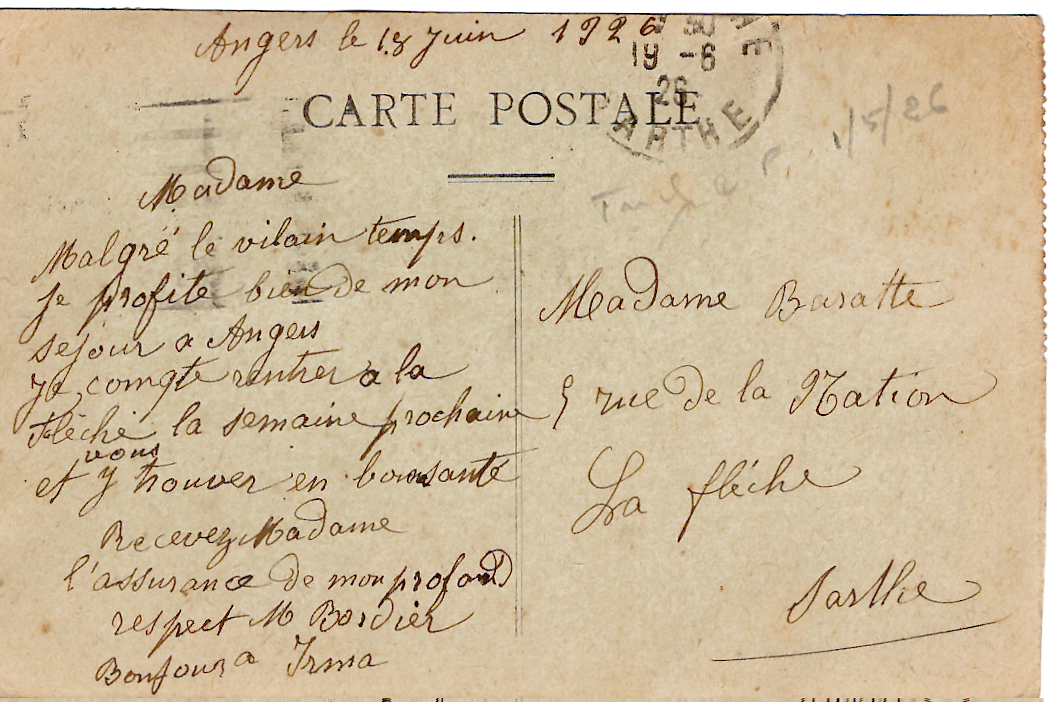 Angers le 18 Juin 1926
30
19 -6
26
ARTHE
CARTE POSTALE
1/5/26
Madame
Malgré le vilain temps.
je profite bien de mon
sejour a Angers
Je compte rentrer a la
Flèche la semaine prochaine
vous
et y trouver en bonne santé
Recevez Madame
l'assurance de mon profond
respect M Bordier
Bonjour a Irma
Madame Baratte
5 rue de la Nation
La flèche
Sarthe